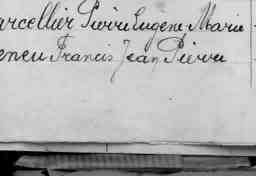 arcellier Pierre Eugene Marie
eneu Francis Jean Pierre